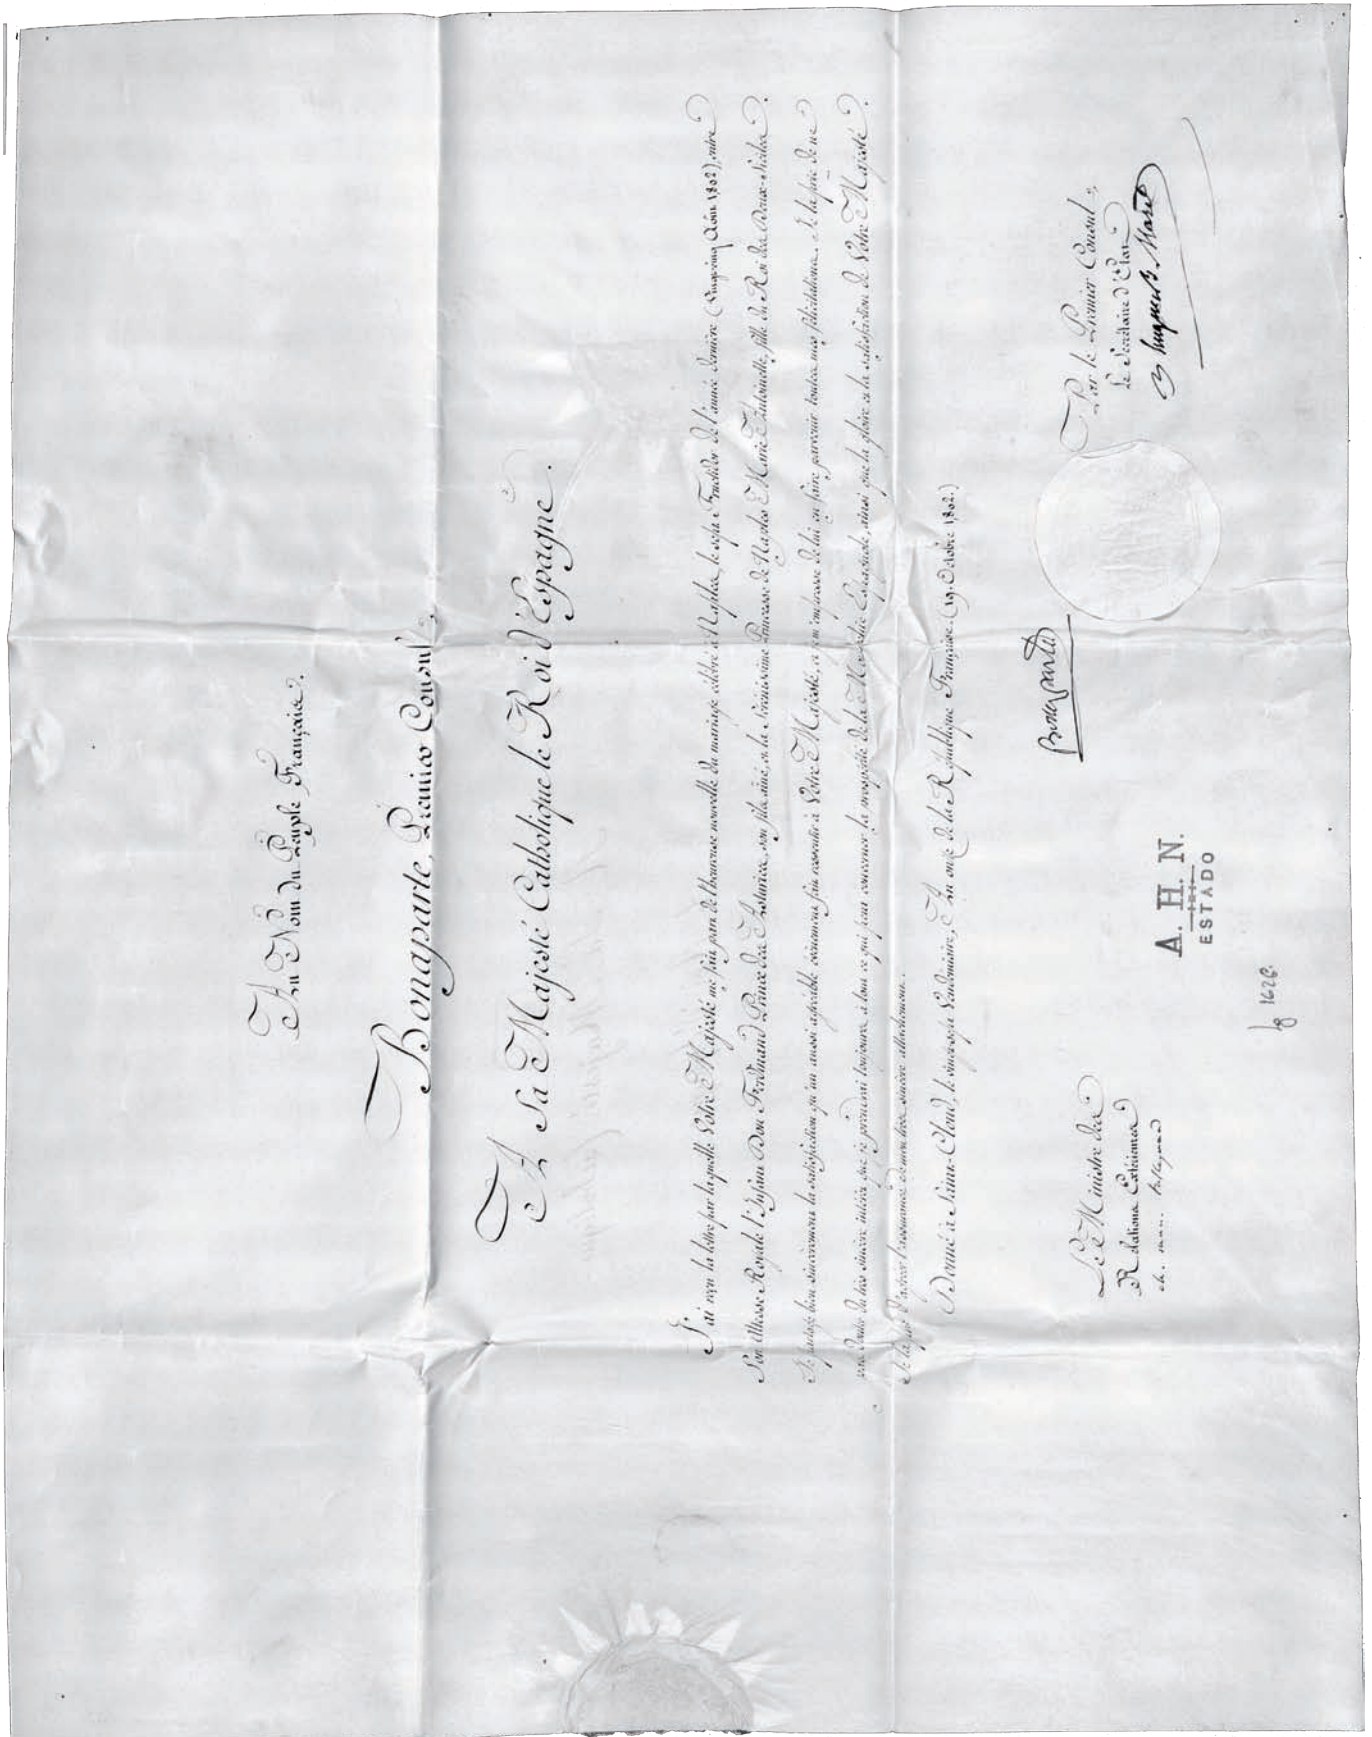 Au Nom du Peuple Français.
Bonaparte, Premier Consul,
A Sa Majesté Catholique le Roi d'Espagne.
J'ai reçu la lettre par laquelle Votre Majesté me fait part de l'heureuse nouvelle du mariage célébré à Naples, le sept Fructidor de l'année dernière ( Août 1802), entre
Son Altesse Royale l'Infant Don Ferdinand Prince des Asturies, son fils aîné, et la Sérénissime Princesse de Naples Marie Antoinette, fille du Roi des Deux-Siciles.
Je partage bien sincèrement la satisfaction qu'un aussi agréable événement fait ressentir à Votre Majesté, et je m'empresse de lui en faire parvenir toutes mes félicitations. Je la prie de ne
pas douter du très sincère intérêt que je prendrai toujours à tout ce qui peut concerner la prospérité de la Monarchie Espagnole, ainsi que la gloire et la satisfaction de Votre Majesté.
Je la prie d'agréer l'assurance de mon très sincère attachement.
Donné à Saint-Cloud, le vingt-sept Vendémiaire, An onze de la République Française. (19. Octobre 1802.)
Bonaparte
Le Ministre des
Relations Extérieures
ch. mau. talleyrand
Par le Premier Consul,
Le Secrétaire d'Etat
hugues B. Maret
A. H. N.
ESTADO
lg 1626.